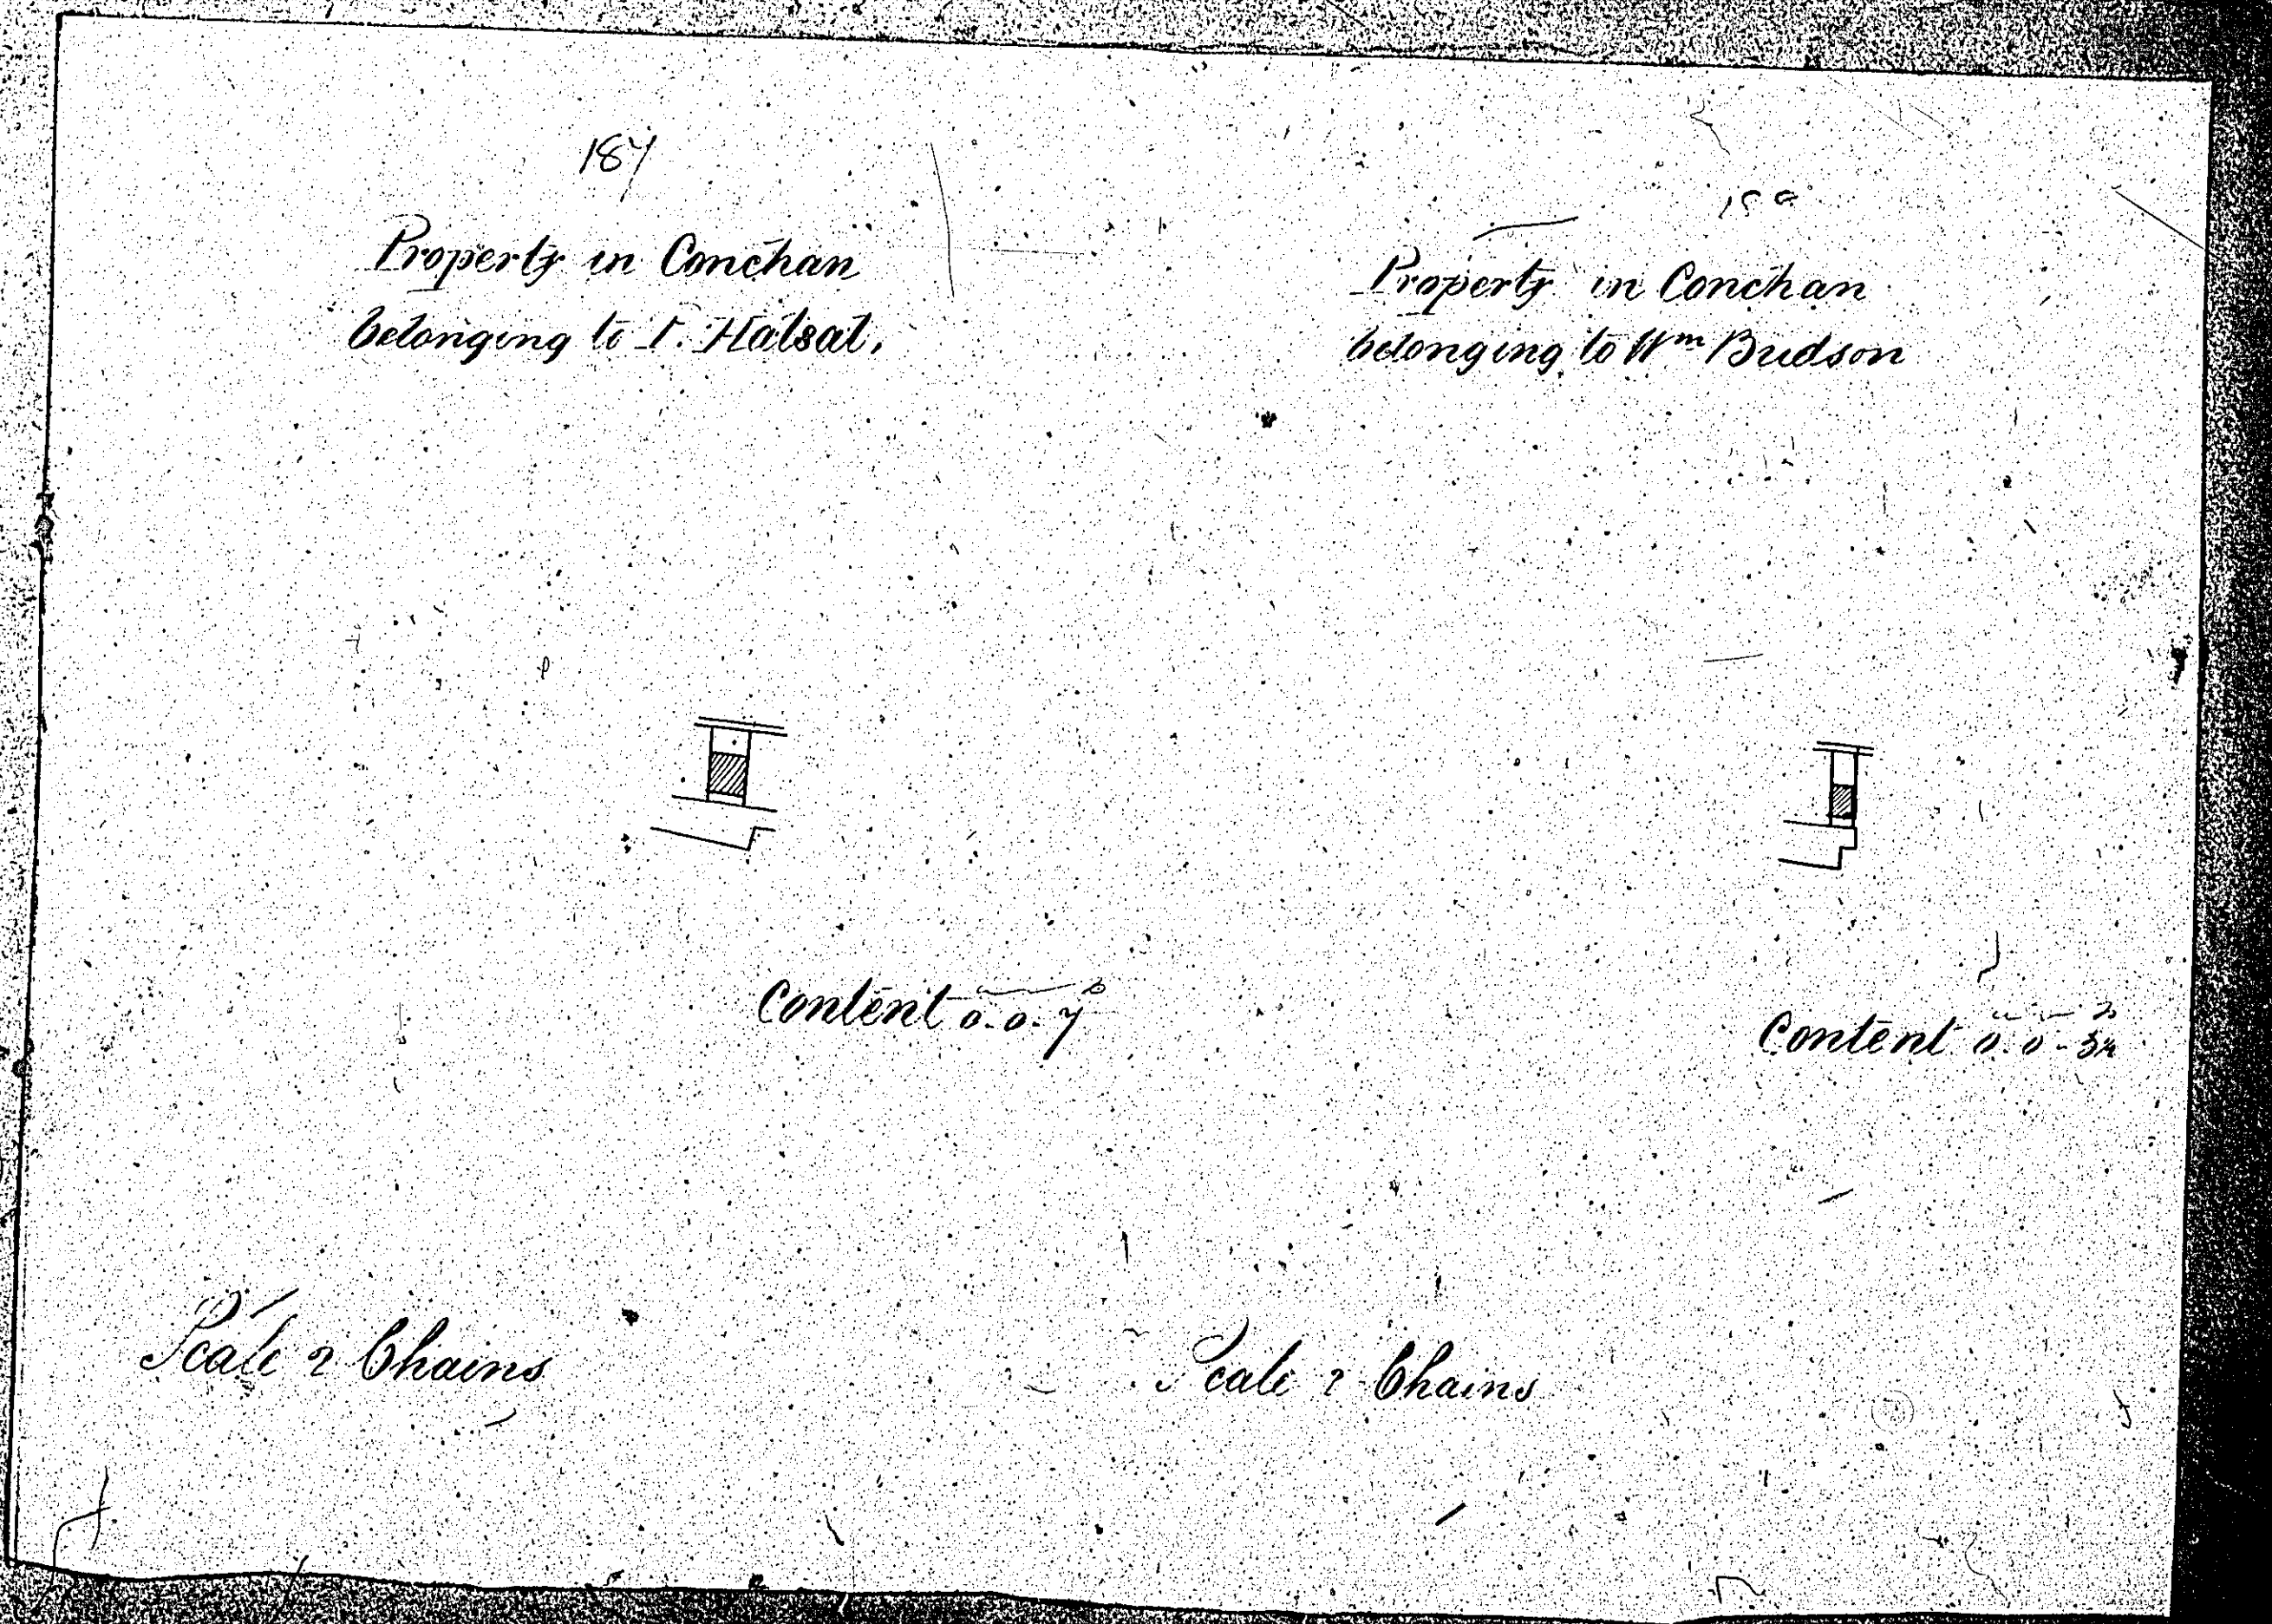 187
Property in Conchan
belonging to T. Halsal.
Content 0.0.7
Scale 2 Chains
Property in Conchan
belonging to Wm Budson
Content 0.0.
Scale 2 Chains